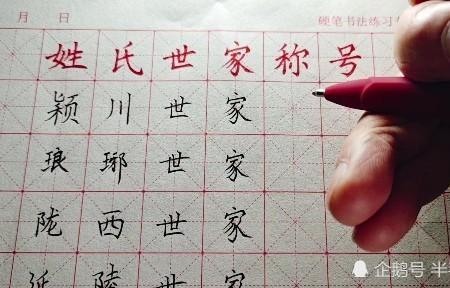 月 日 硬笔书法练习
姓氏世家称号
颍川世家
琅琊世家
陇西世家
延陵世家
企鹅号 半